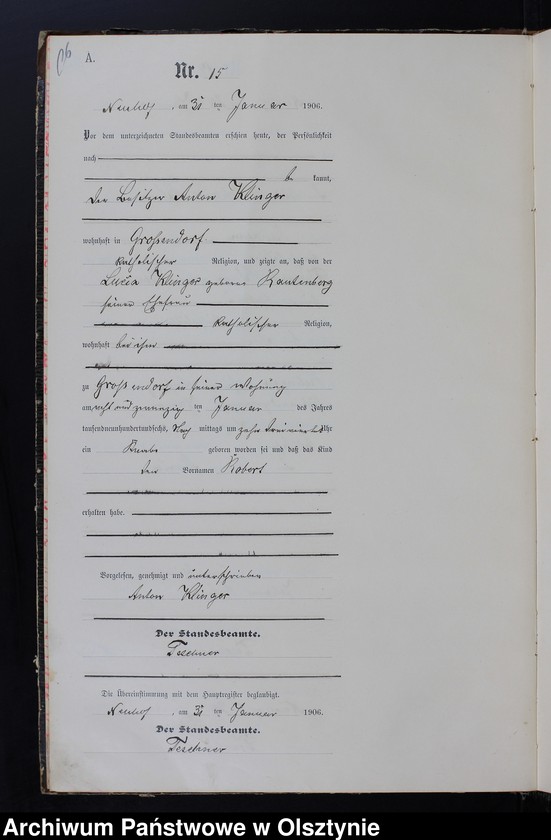 A.
Nr. 15
Neuhof, am 31 ten Januar 1906.
Vor dem unterzeichneten Standesbeamten erschien heute, der Persönlichkeit
nach
be kannt,
der Besitzer Anton Klinger
wohnhaft in Großendorf
katholischer Religion, und zeigte an, daß von der
Lucia Klinger geborene Rautenberg
seiner Ehefrau
katholischer Religion,
wohnhaft bei ihm
zu Großendorf in seiner Wohnung
am acht und zwanzig ten Januar des Jahres
tausendneunhundertundsechs, Nach mittags um zehn dreiviertel Uhr
ein Knabe geboren worden sei und daß das Kind
den Vornamen Robert
erhalten habe.
Vorgelesen, genehmigt und unterschrieben
Anton Klinger
Der Standesbeamte.
Teschner
Die Übereinstimmung mit dem Hauptregister beglaubigt.
Neuhof, am 31 ten Januar 1906.
Der Standesbeamte.
Teschner
Archiwum Państwowe w Olsztynie